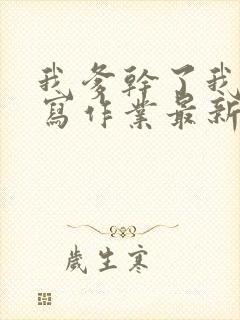 我爹幹了我
寫作業最新
歲生寒